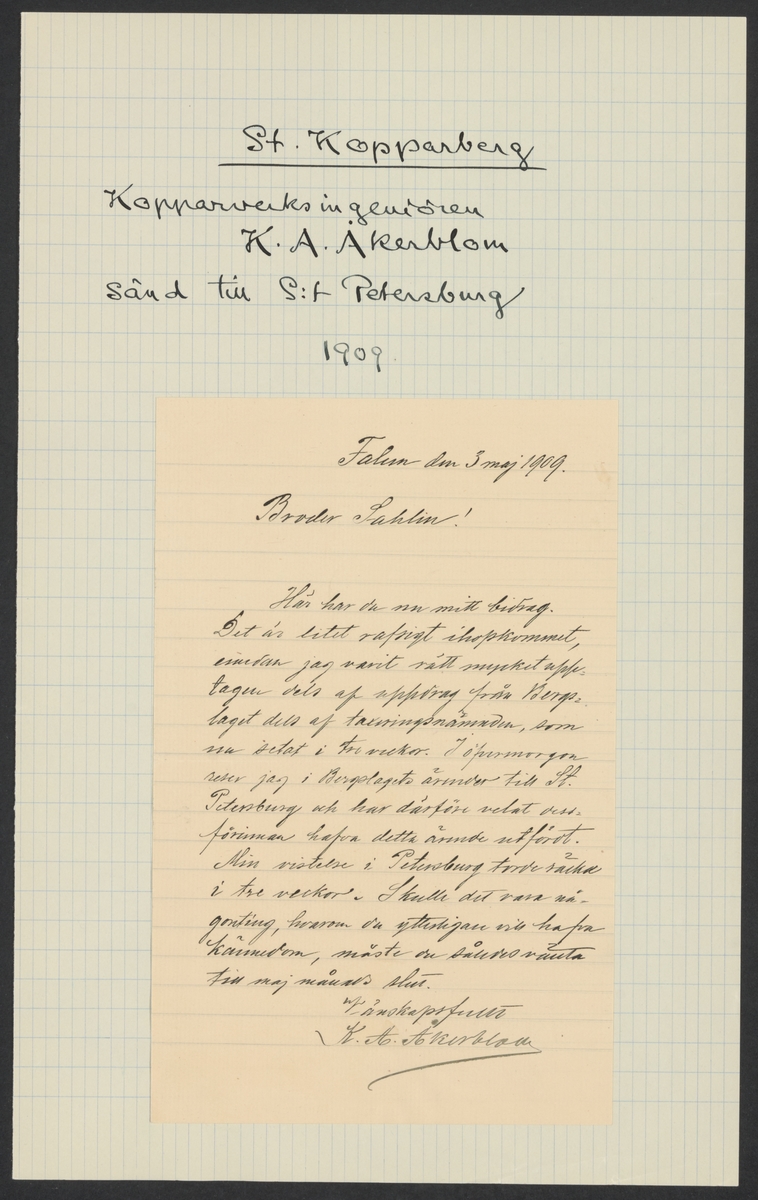 St. Kopparberg
Kopparverksingeniören
K. A. Åkerblom
sänd till S:t Petersburg
1909.
Falun den 3 maj 1909.
Broder Sahlin!
Här har du nu mitt bidrag.
Det är litet rafsigt ihopkommet,
emedan jag varit rätt mycket upp-
tagen dels af uppdrag från Bergs-
laget dels af taxeringsnämnden, som
nu setat i tre veckor. I öfvermorgon
reser jag i Bergslagets ärender till St.
Petersburg och har därföre velat dess-
förinnan hafva detta ärende utfördt.
Min vistelse i Petersburg torde räcka
i tre veckor. Skulle det vara nå-
gonting, hvarom du ytterligare vill hafva
kännedom, måste du således vänta
till maj månads slut.
Vänskapsfullt
K. A. Åkerblom